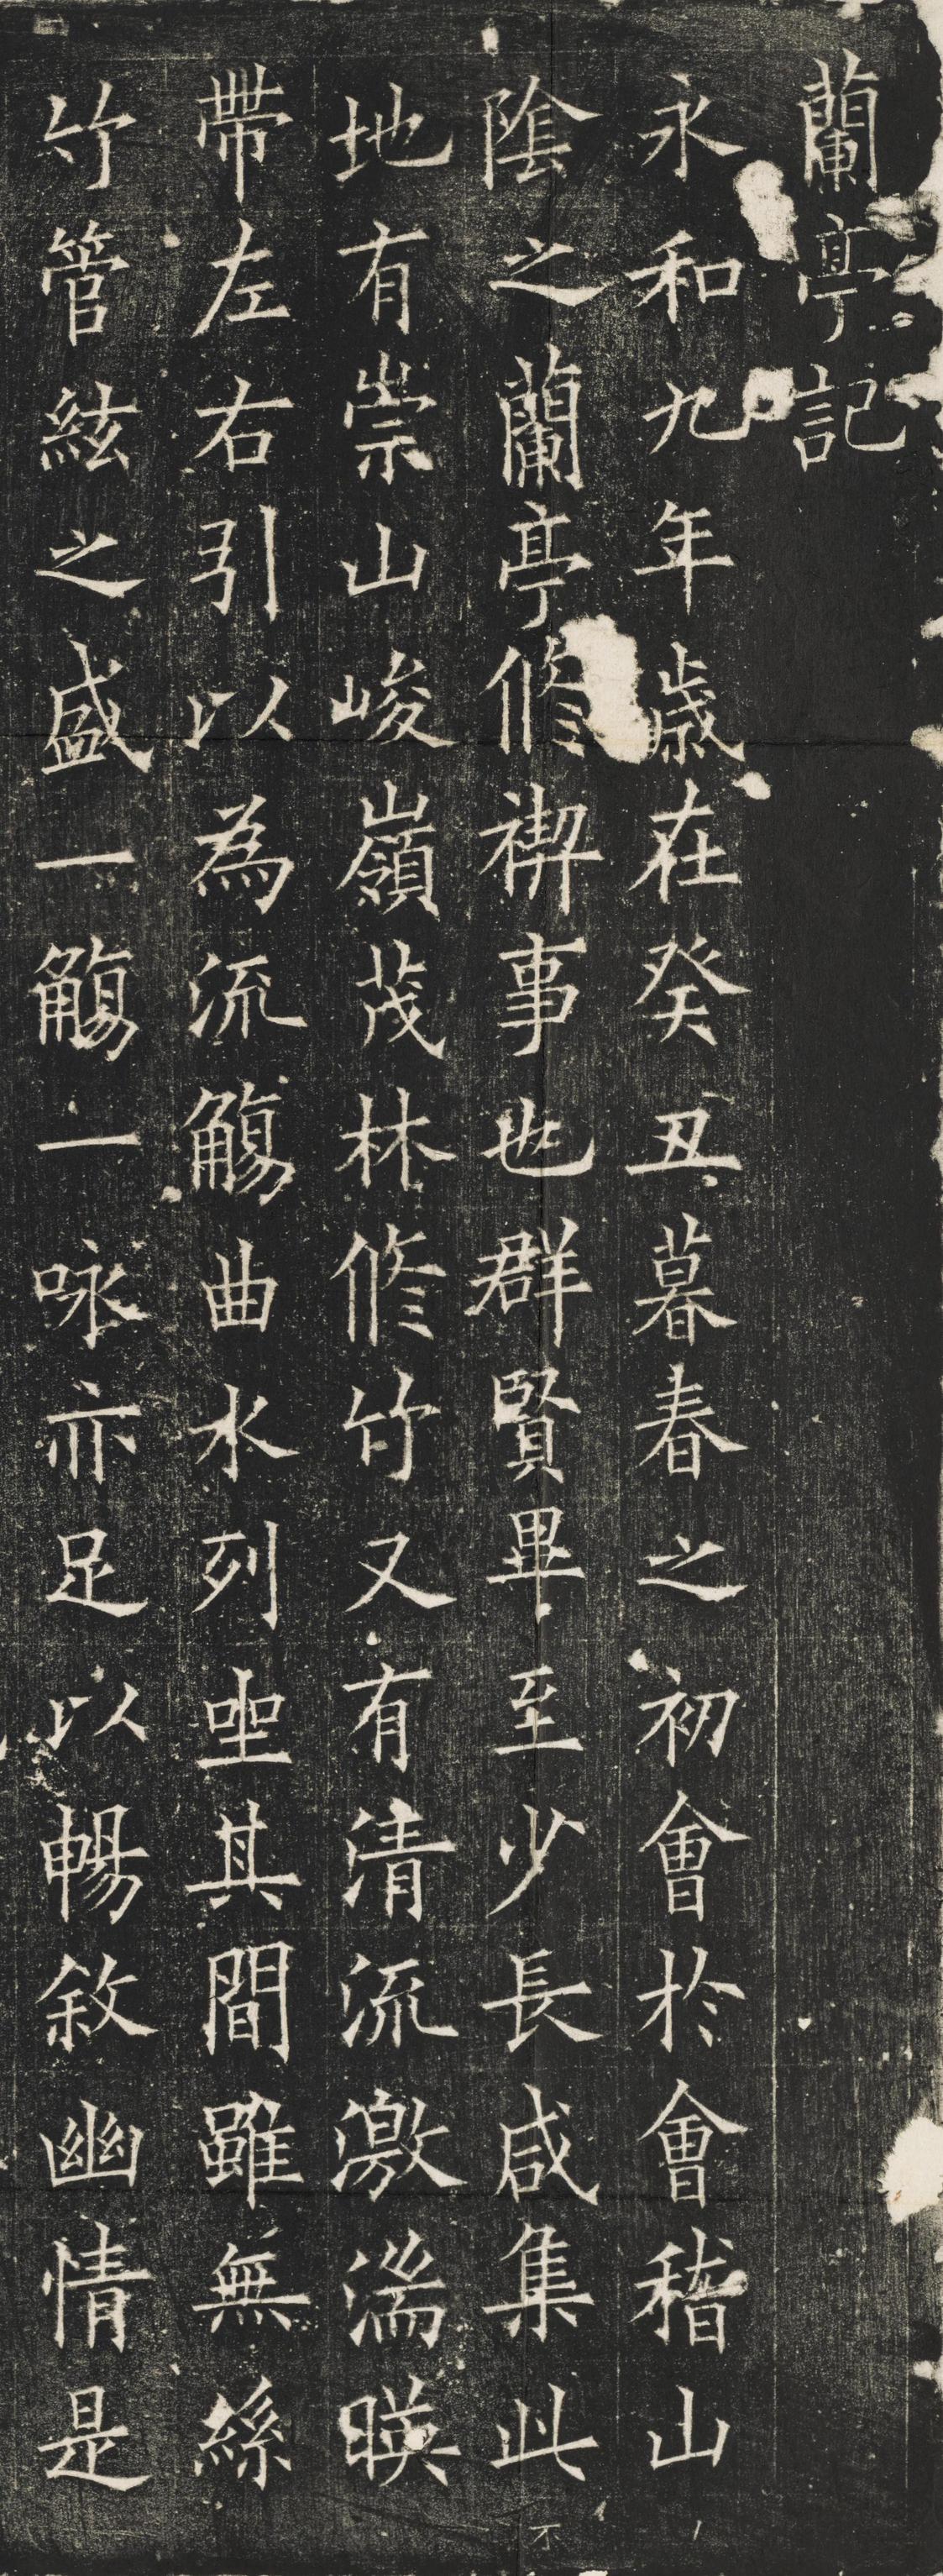 蘭亭記
永和九年歲在癸丑暮春之初會於會稽山
陰之蘭亭脩禊事也群賢畢至少長咸集此
地有崇山峻嶺茂林脩竹又有清流激湍暎
帶左右引以為流觴曲水列坐其間雖無絲
竹管絃之盛一觴一咏亦足以暢敘幽情是
不